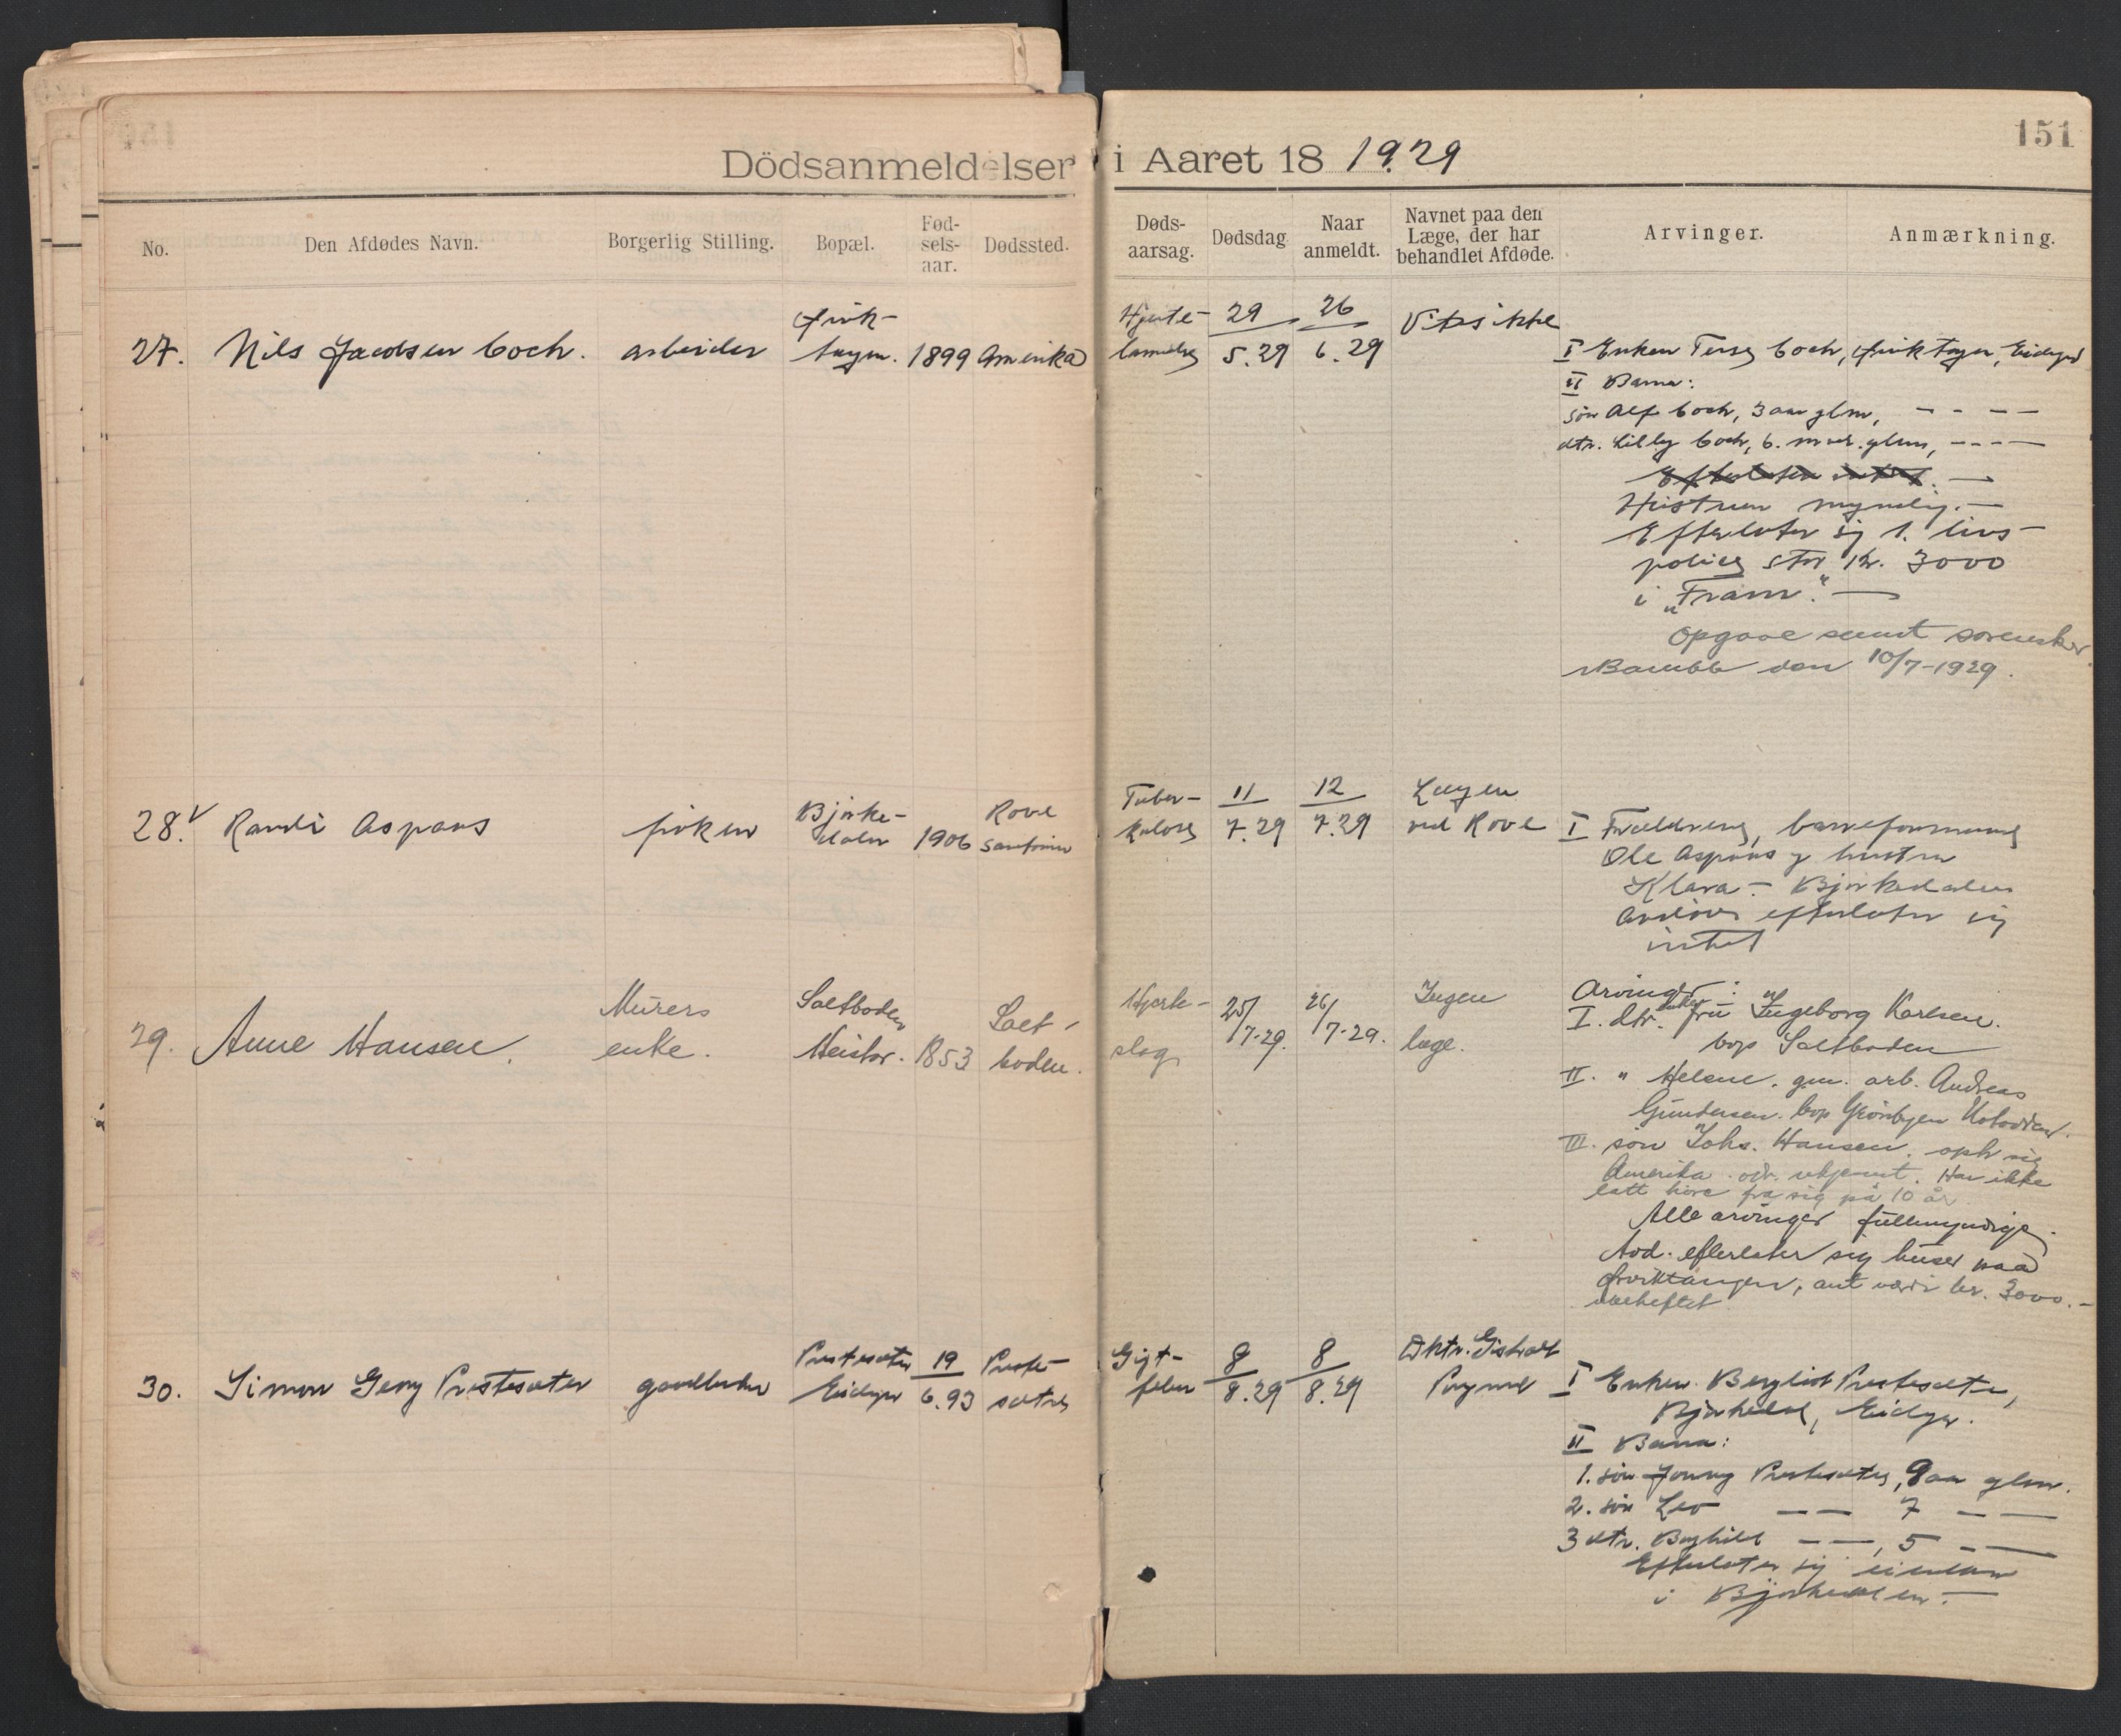 151
Dödsanmeldelser i Aaret 18 1929
No.
Den Afdødes Navn.
Borgerlig Stilling.
Bopæl.
Fød-
sels-
aar.
Dødssted.
Døds-
aarsag.
Dødsdag
Naar
anmeldt.
Navnet paa den
Læge, der har
behandlet Afdøde.
Arvinger.
Anmærkning.
27. Nils Jacobsen Coch.
arbeider
1899
Amerika
Hjerte-
29
5.29
26
6.29
Vites ikke
I Enken Coch,
II Barna:
søn Alf Coch, 3 aar glm, - - - -
dtr. Lilly Coch, 6. mdr. glm, - - - -
Hustruen myndig. -
Efterlater sig 1. livs-
police stor kr. 3000
i „Fram". -
Opgave sendt sorensker
Bamble den 10/7-1929.
28. Randi Aspaas
piken
Bjørke-
dalen
1906
Rove
Tuber-
kulose
11
7.29
12
7.29
Lægen
ved Rove
I Forældrene,
Ole Aspaas og hustru
Klara - Bjørkedalen
Avdøde efterlater sig
intet
29. Anne Hansen.
Murers
enke.
Saltboden
Heistar.
1853
Salt-
boden.
Hjerte-
slag
25/
7-29.
26/
7-29.
Ingen
læge.
Arvinger:
I. dtr. enke fru Ingeborg Karlsen.
bop Saltboden
II. " Helene, gm. arb. Andreas
Gundersen. bop Notodden.
III. søn Johs. Hansen. oph sig
Amerika. adr. ukjent. Har ikke
latt høre fra sig på 10 år
Alle arvinger fullmyndige.
Avd. efterlater sig huset paa
Ørviktangen, ant værdi kr. 3000.-
ubeheftet
30. Simon Georg Prestesæter
gaardbruker
Prestesæter
Eidanger
19
6.93
Preste-
sætre
Gigt-
feber
8
8.29
8
8.29
Dktr. Gisholt
Porsgrund
I Enken Bergliot Prestesæter,
Bjørkedal, Eidgr.
II Barna:
1. søn Jonny Prestesæter, 9 aar glm.
2. søn Leo - - 7 - -
3 dtr. Borghild - -, 5 - -
Efterlater sig eiendom
i Bjørkedalen. -